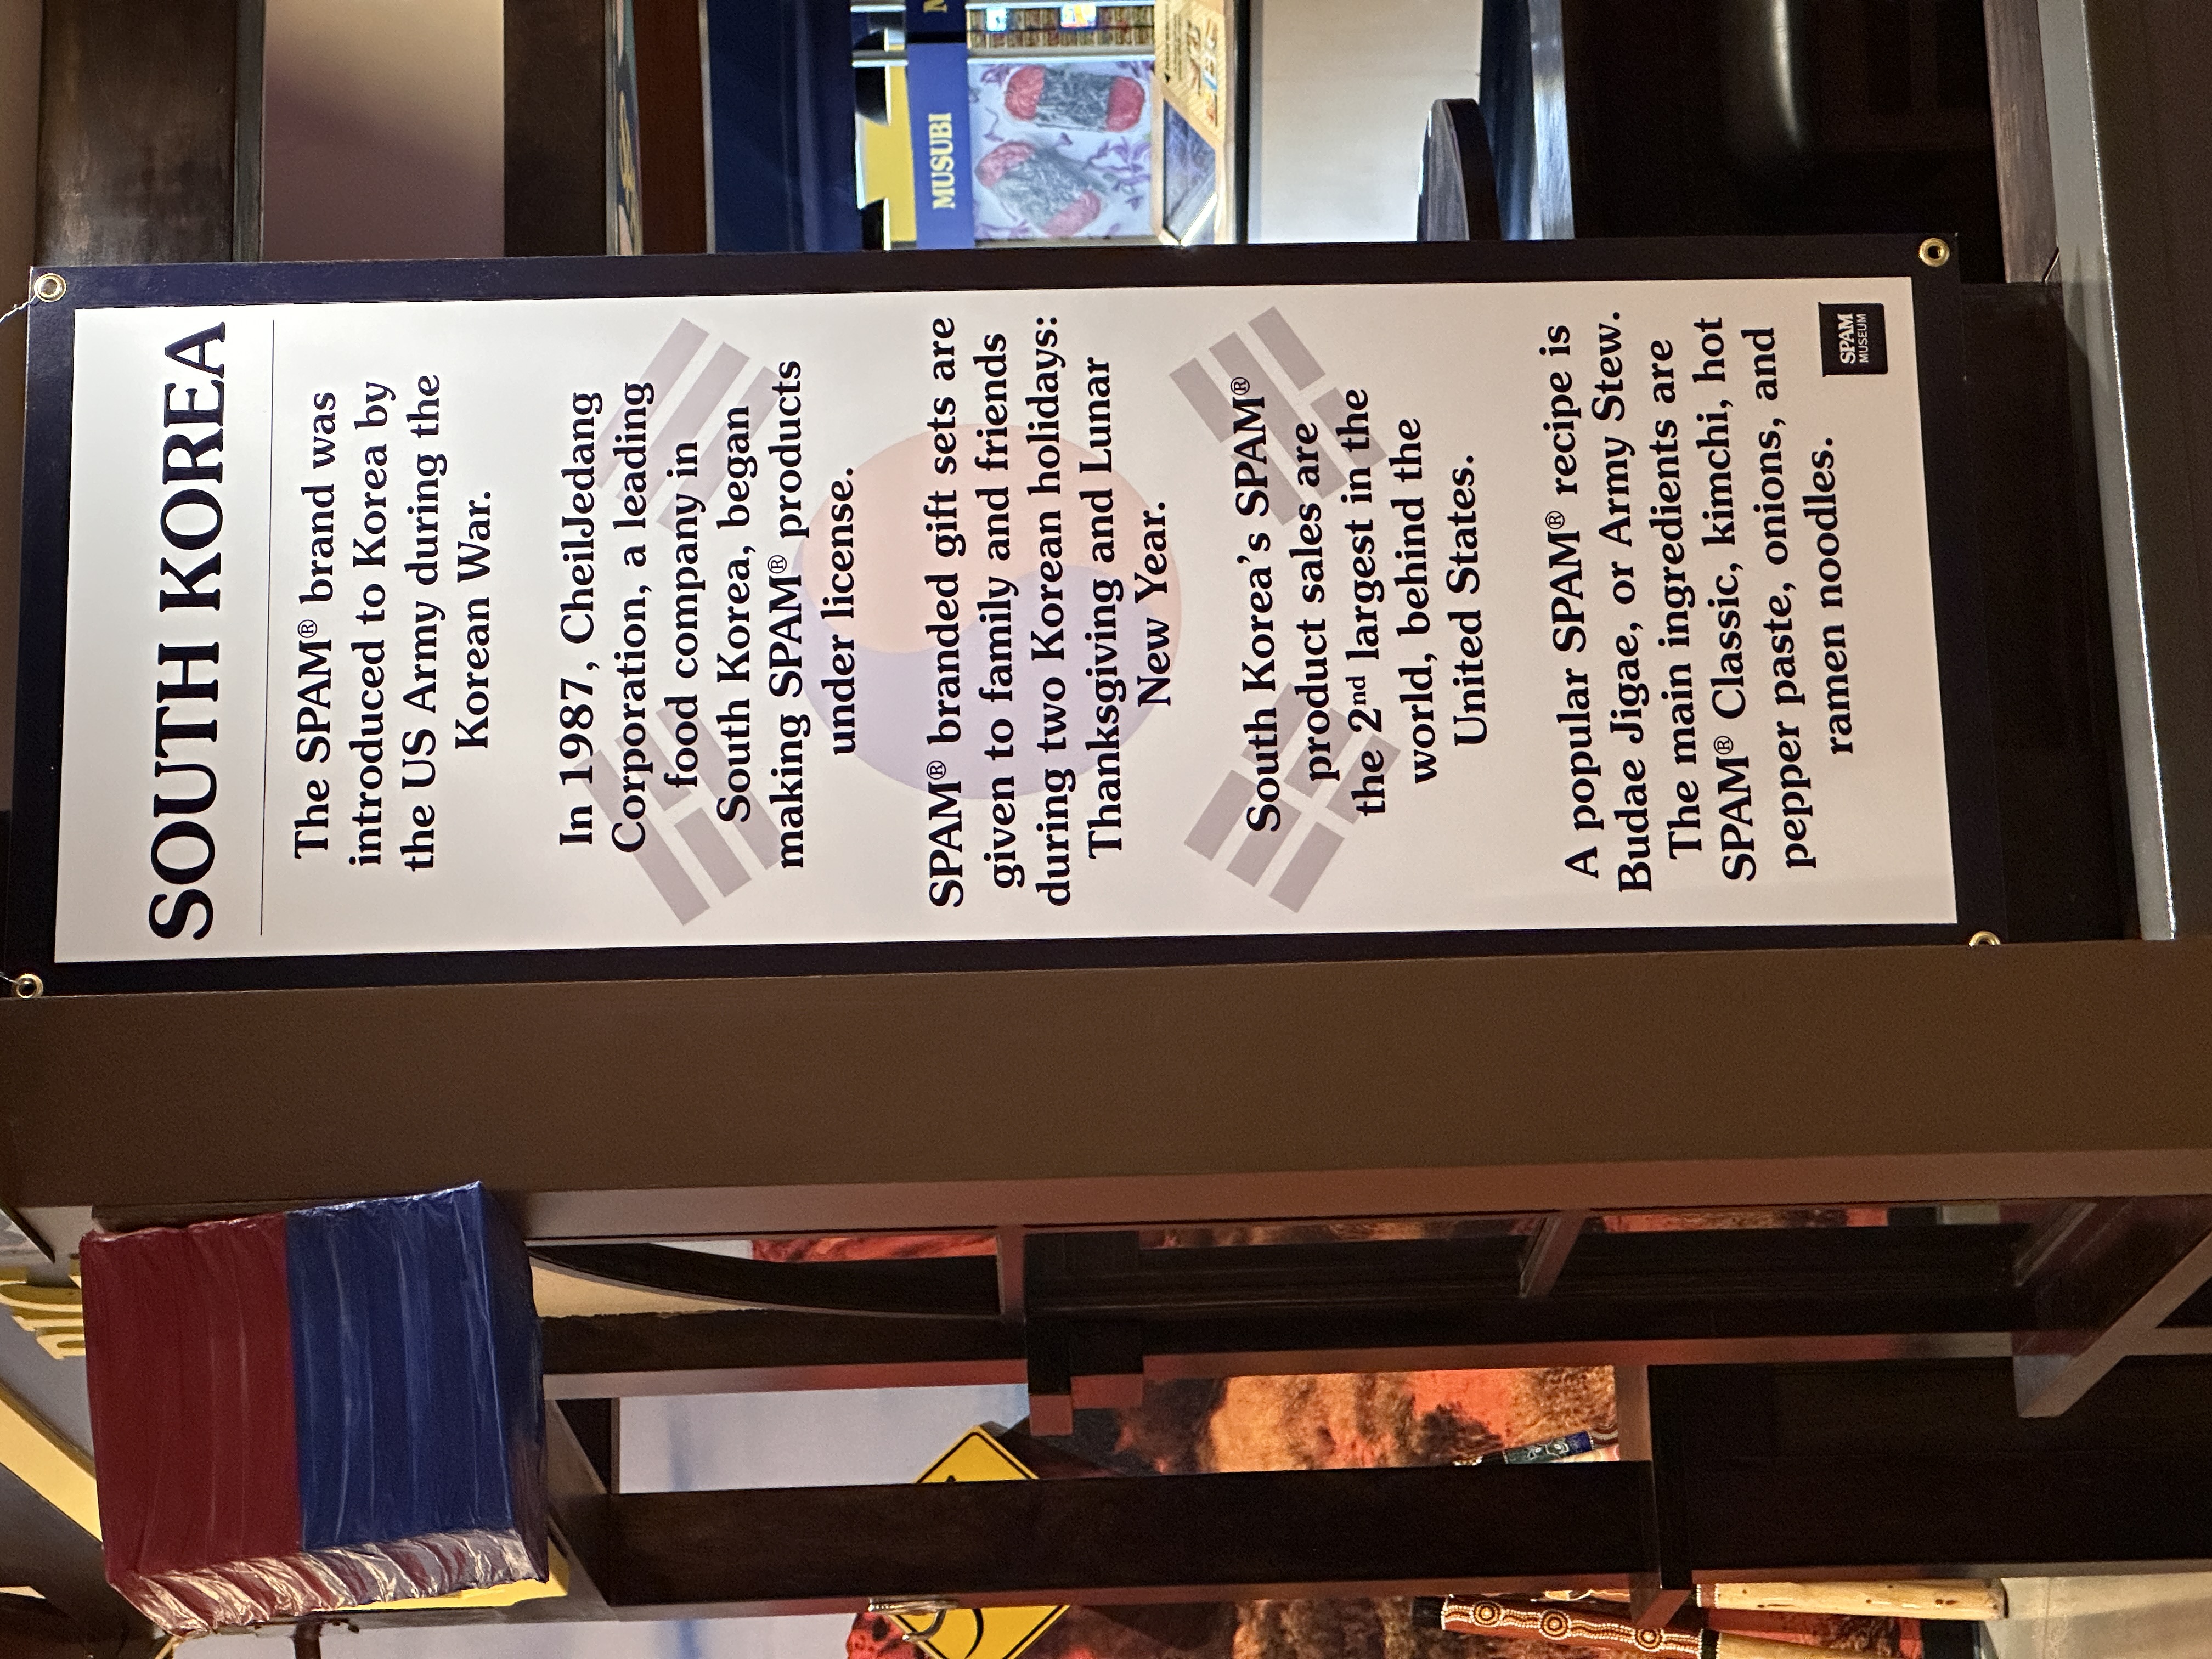 SOUTH KOREA
The SPAM® brand was
introduced to Korea by
the US Army during the
Korean War.
In 1987, CheilJedang
Corporation, a leading
food company in
South Korea, began
making SPAM® products
under license.
SPAM® branded gift sets are
given to family and friends
during two Korean holidays:
Thanksgiving and Lunar
New Year.
South Korea's SPAM®
product sales are
the 2nd largest in the
world, behind the
United States.
A popular SPAM® recipe is
Budae Jigae, or Army Stew.
The main ingredients are
SPAM® Classic, kimchi, hot
pepper paste, onions, and
ramen noodles.
SPAM
MUSEUM
MUSUBI